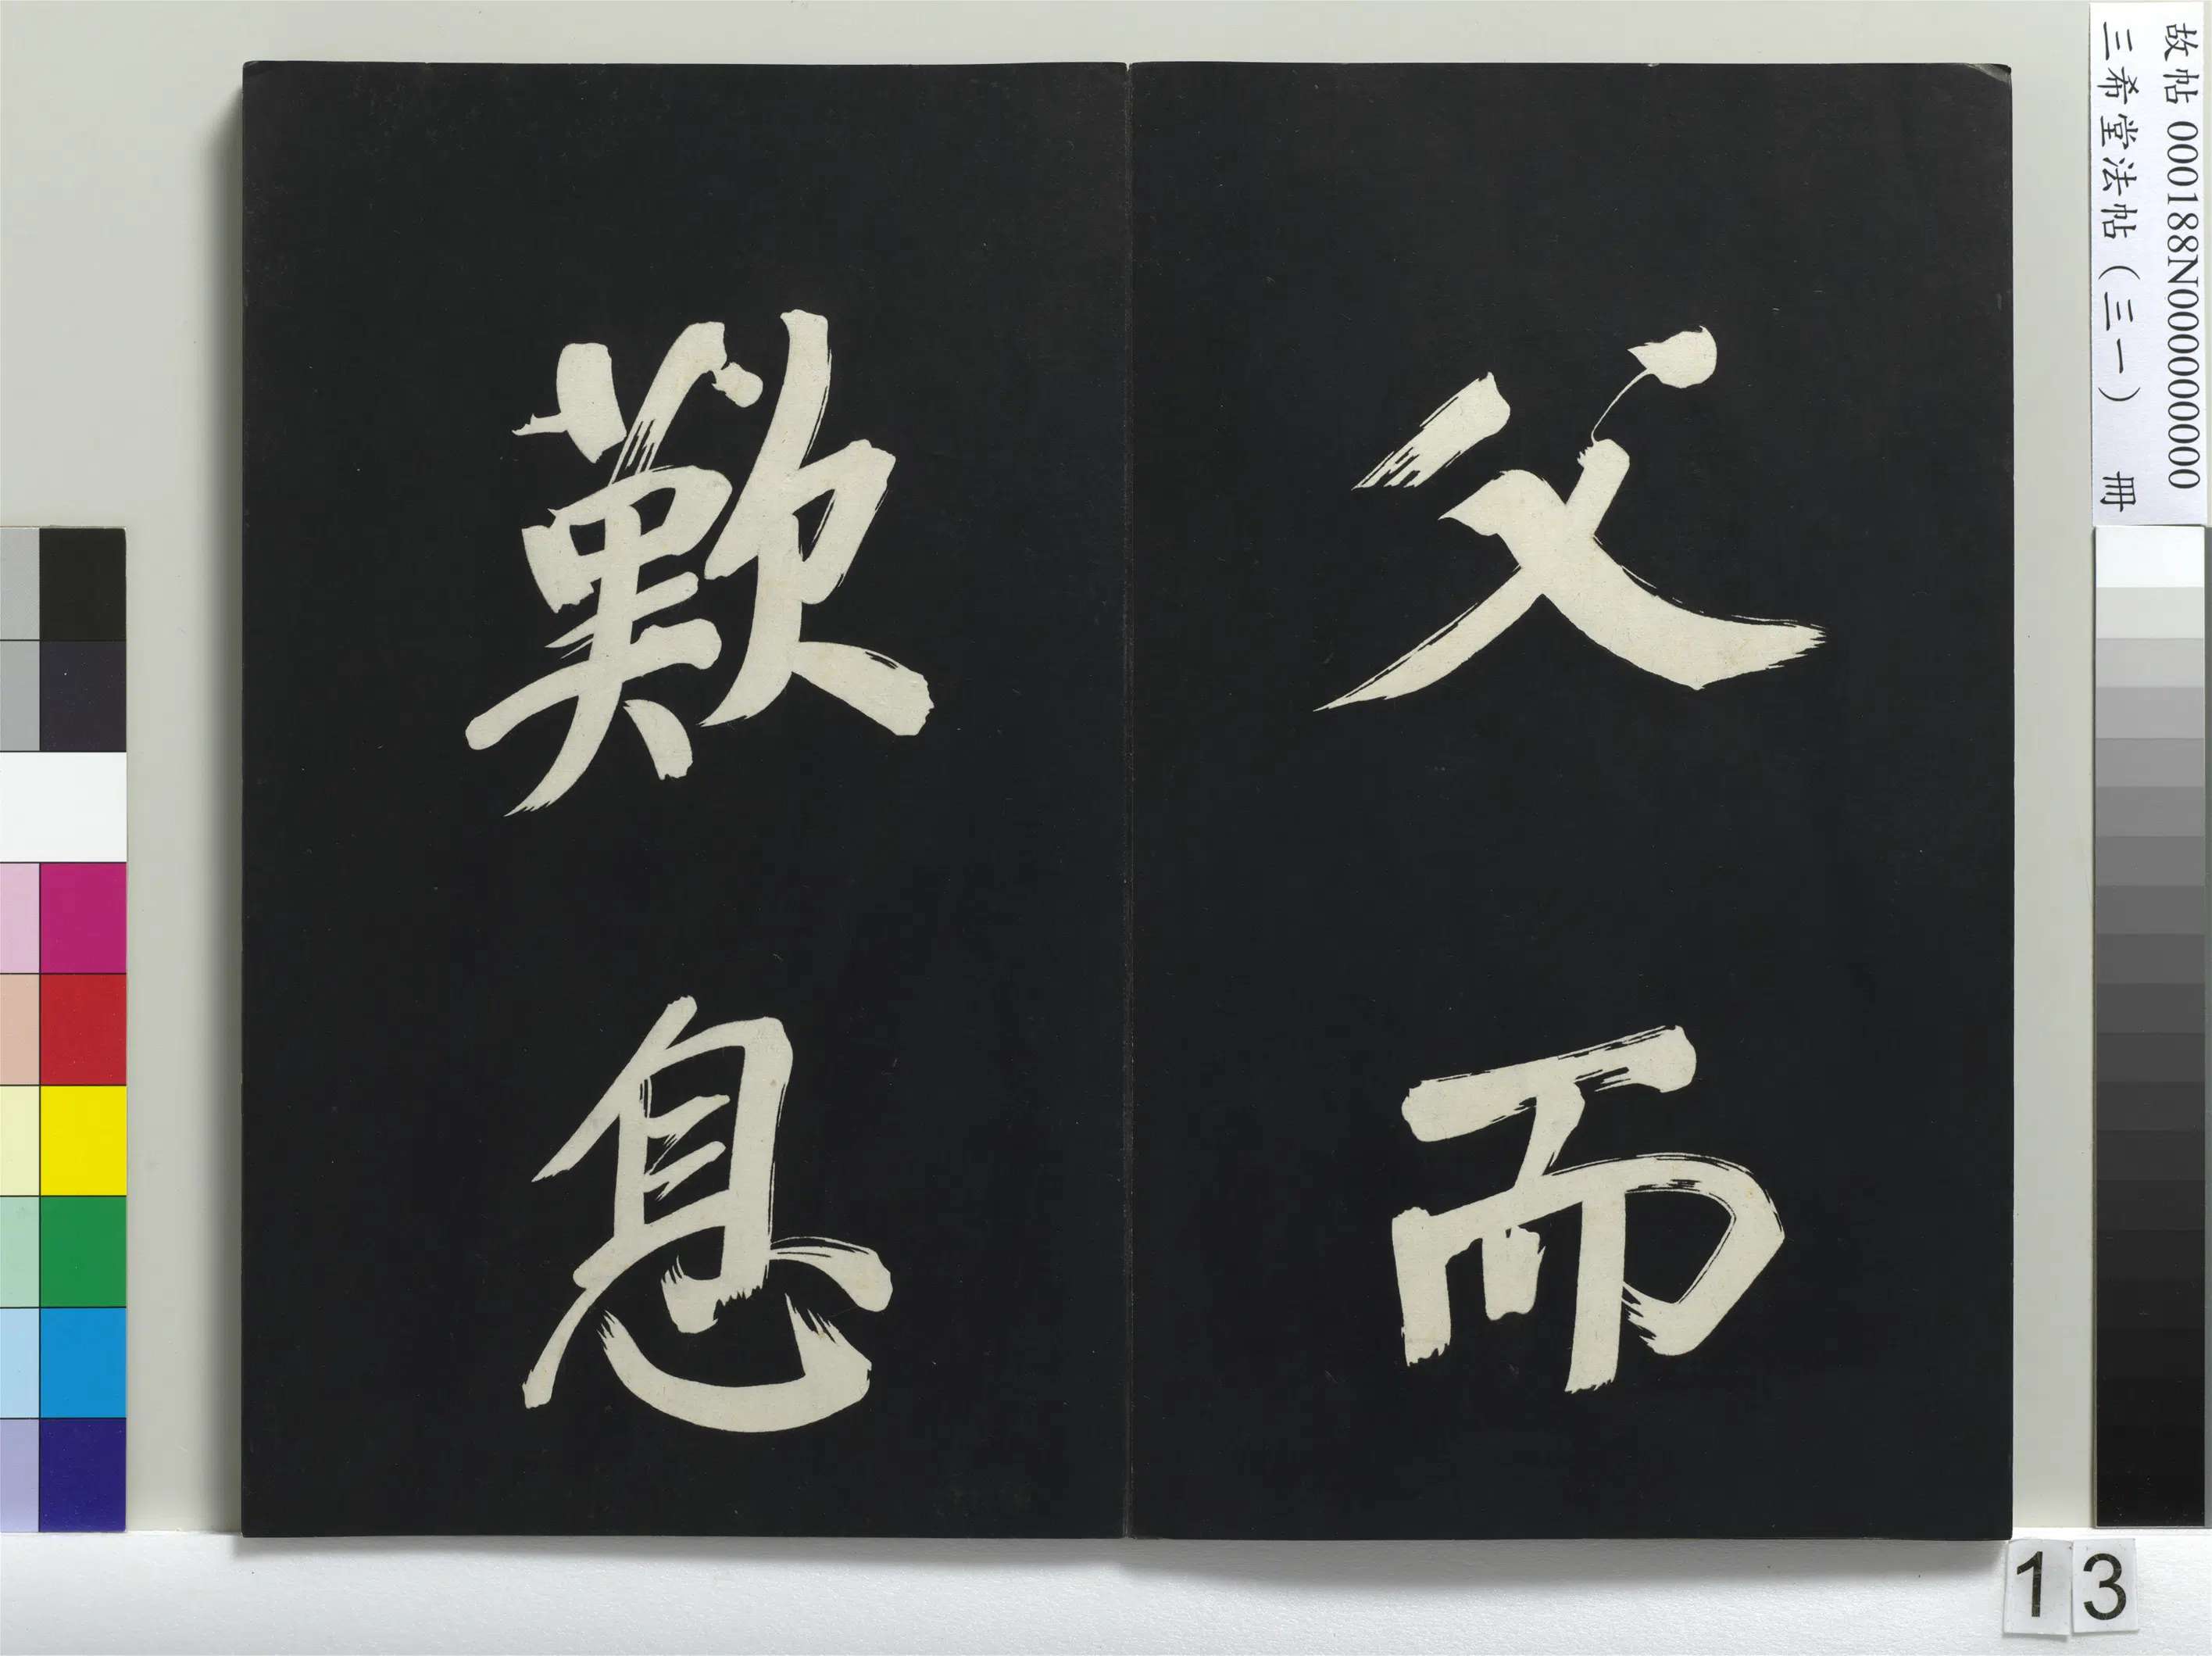 父而
歎息
故帖 000188N000000000
三希堂法帖（三一） 冊
13